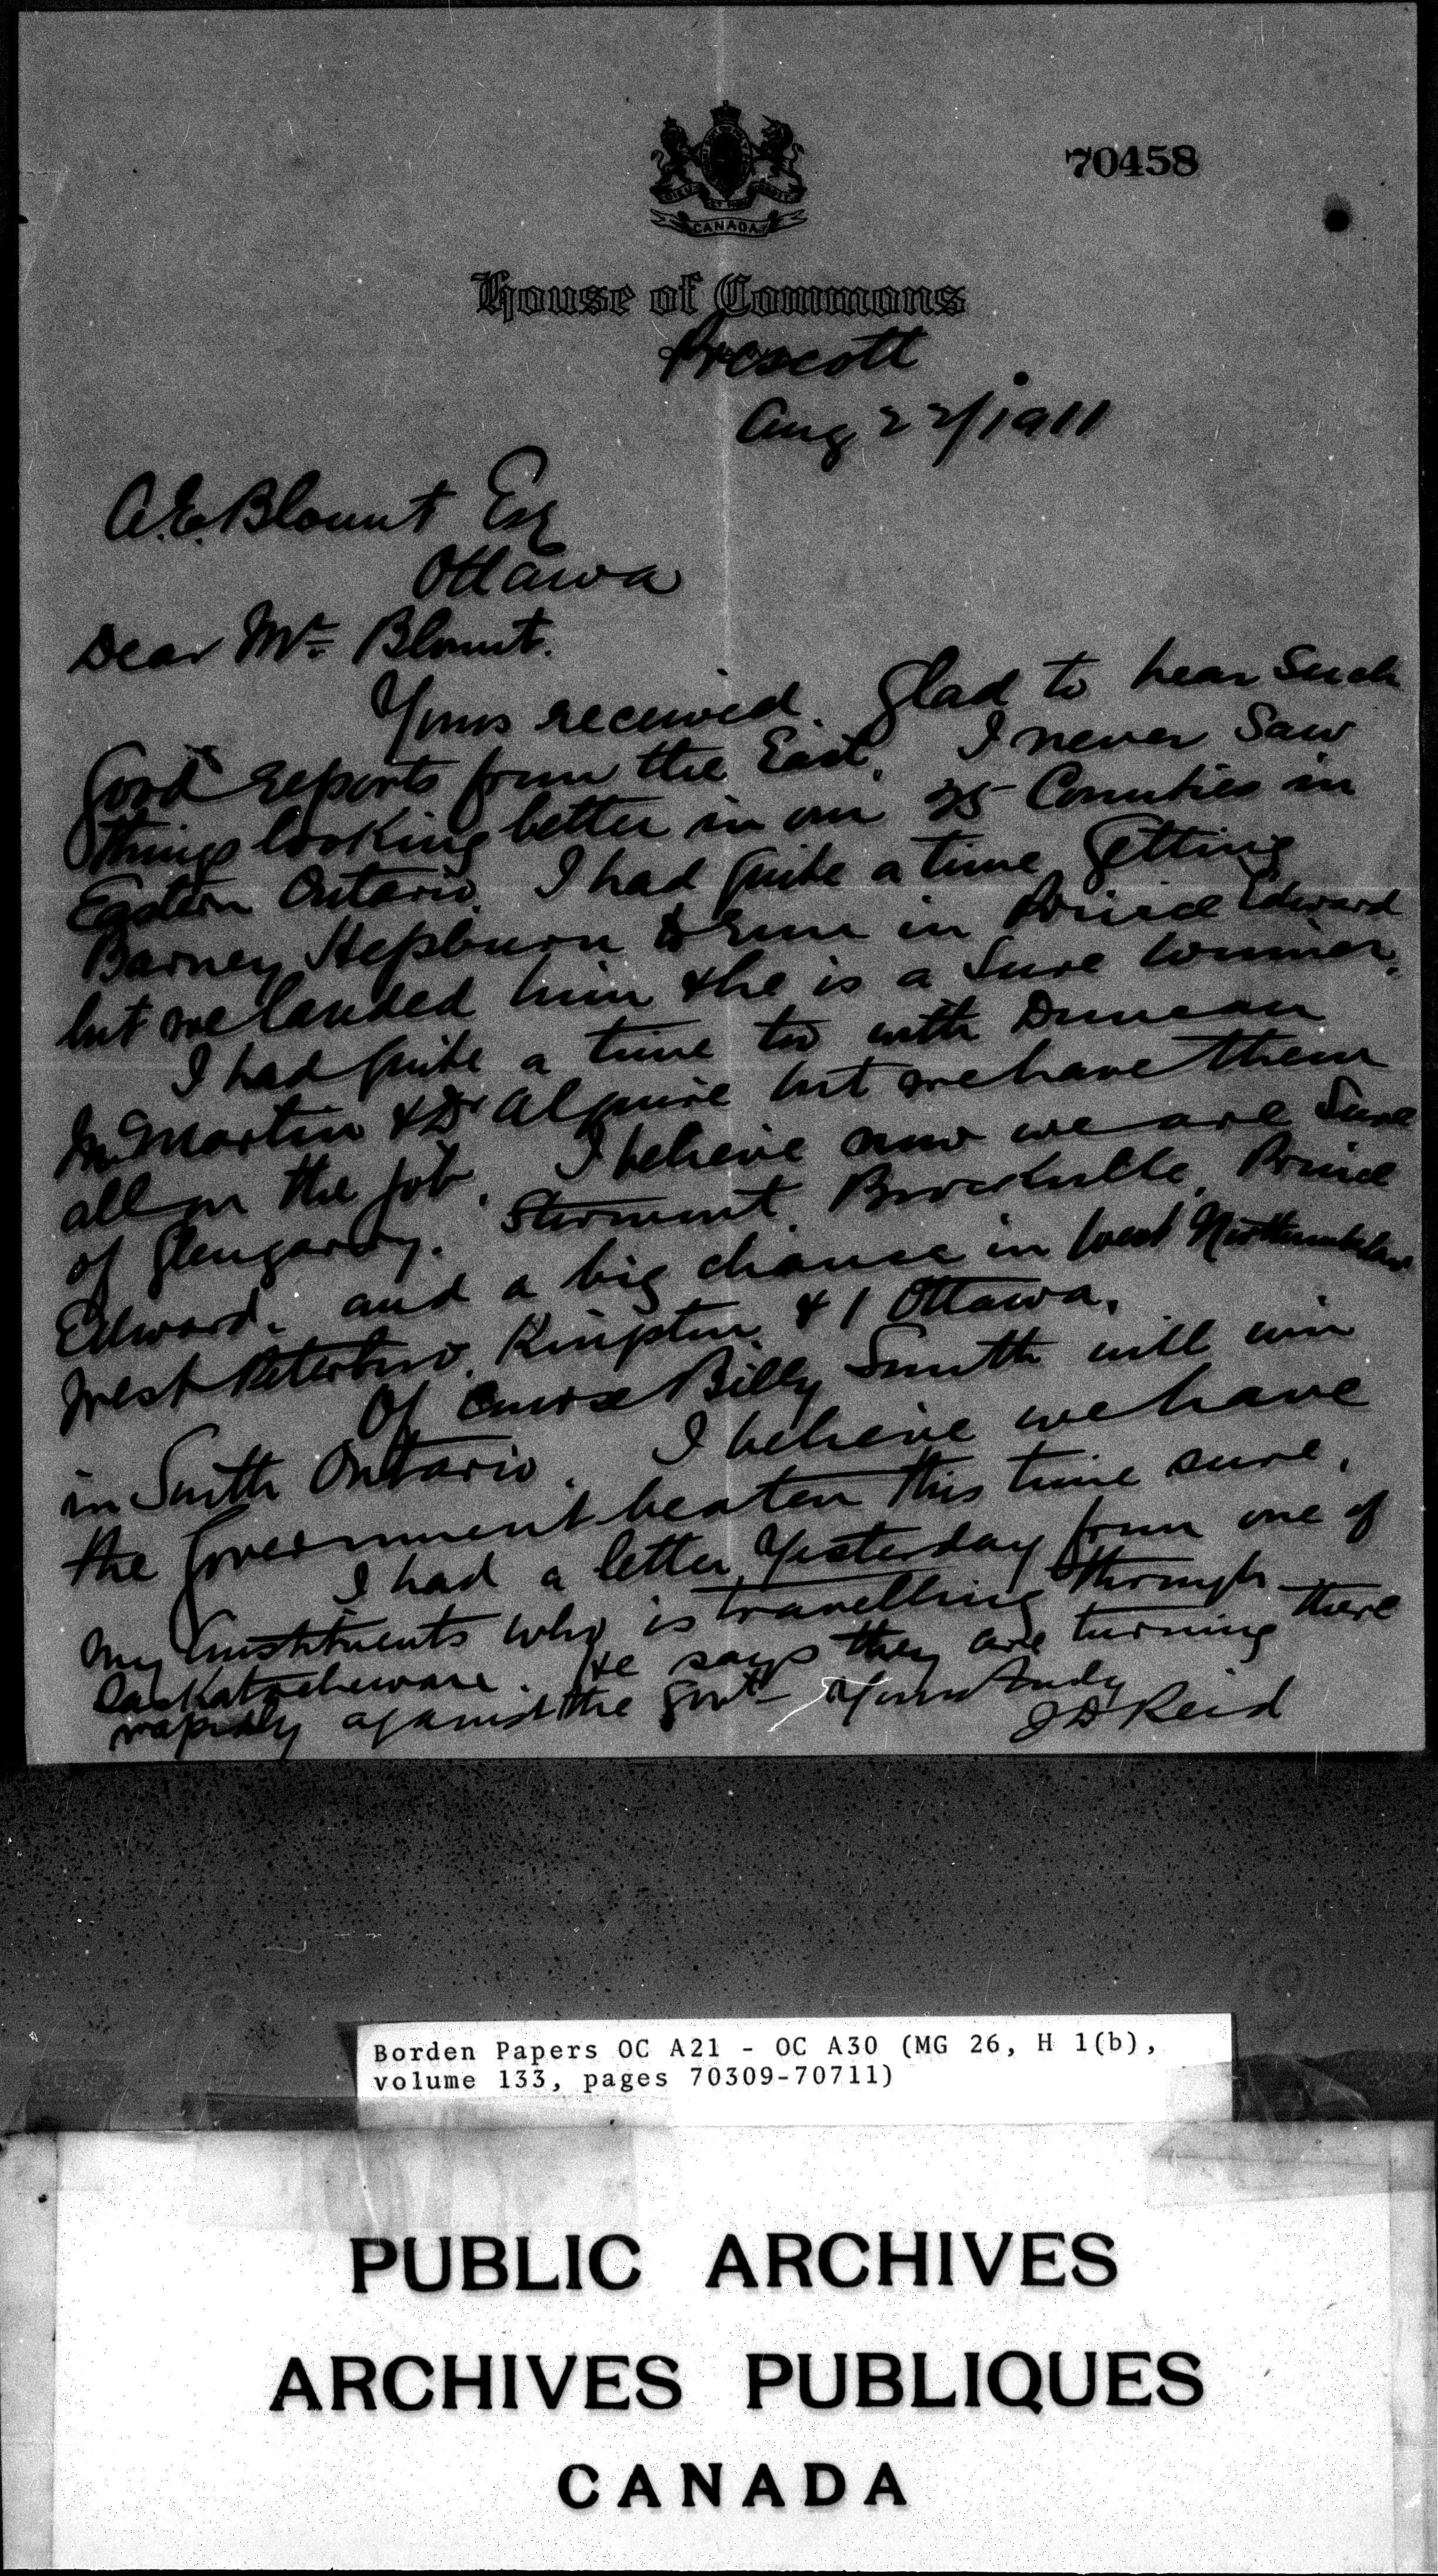 70458
DIEU ET MON DROIT
CANADA
House of Commons
Prescott
Aug 22/1911
A.E. Blount Esq
Ottawa
Dear Mr. Blount.
Yours received. Glad to hear Such
Good reports from the East. I never Saw
things looking better in our 25 Counties in
Eastern Ontario. I had quite a time getting
Barney Hepburn to run in Prince Edward
but we landed him & he is a Sure winner.
I had quite a time too with Duncan
McMartin & Dr Alguire but we have them
all on the job. I believe now we are Sure
of Glengarry. Stormont. Brockville, Prince
Edward. and a big chance in West Northumberland
West Peterboro, Kingston & 1 Ottawa.
Of Course Billy Smith will win
in South Ontario. I believe we have
the Government beaten this time sure.
I had a letter Yesterday from one of
my Constituents who is travelling through
Saskatchewan. He says they are turning there
rapidly against the Govt - Yours truly
J D Reid
Borden Papers OC A21 - OC A30 (MG 26, H 1(b),
volume 133, pages 70309-70711)
PUBLIC ARCHIVES
ARCHIVES PUBLIQUES
CANADA